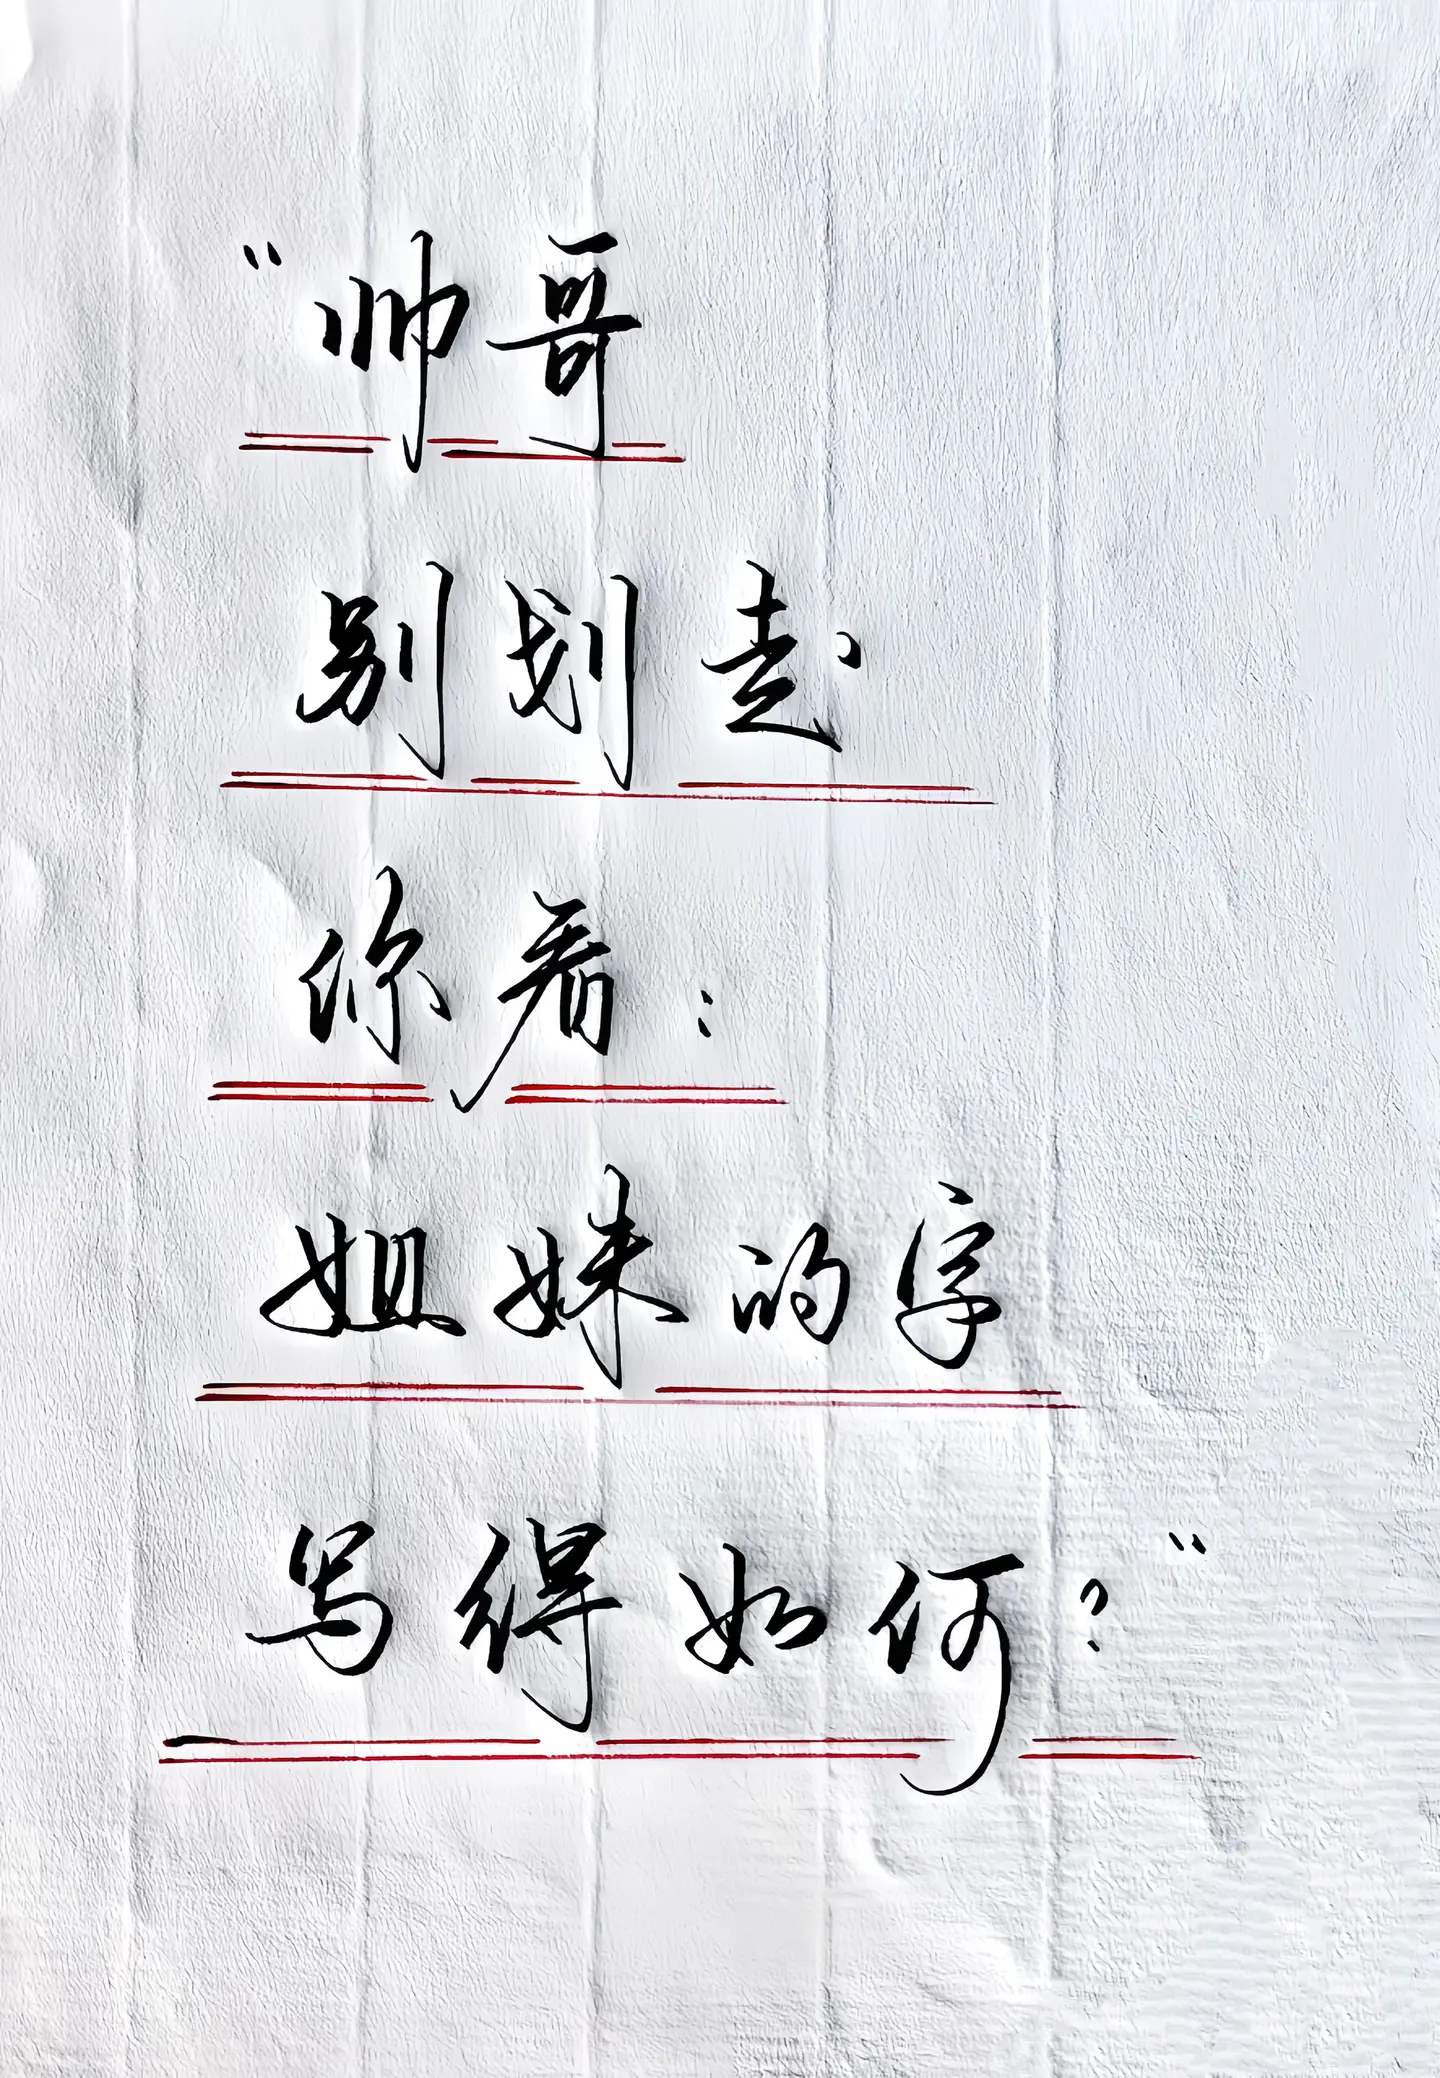 “帅哥
别划走
你看：
姐妹的字
写得如何？”